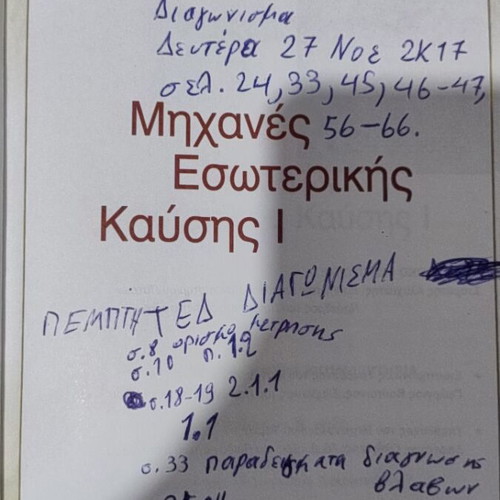 Διαγώνισμα
Δευτέρα 27 Νοε 2Κ17
σελ. 24, 33, 45, 46-47,
Μηχανές 56-66.
Εσωτερικής
Καύσης Ι
ΠΕΜΠΤΗ ΤΕΔ ΔΙΑΓΩΝΙΣΜΑ
σ.8 ορισμό μέτρησης
σ.10 π. 1.2
σ.18-19 2.1.1
1.1
σ. 33 παραδείγματα διαγνωσης
βλαβων